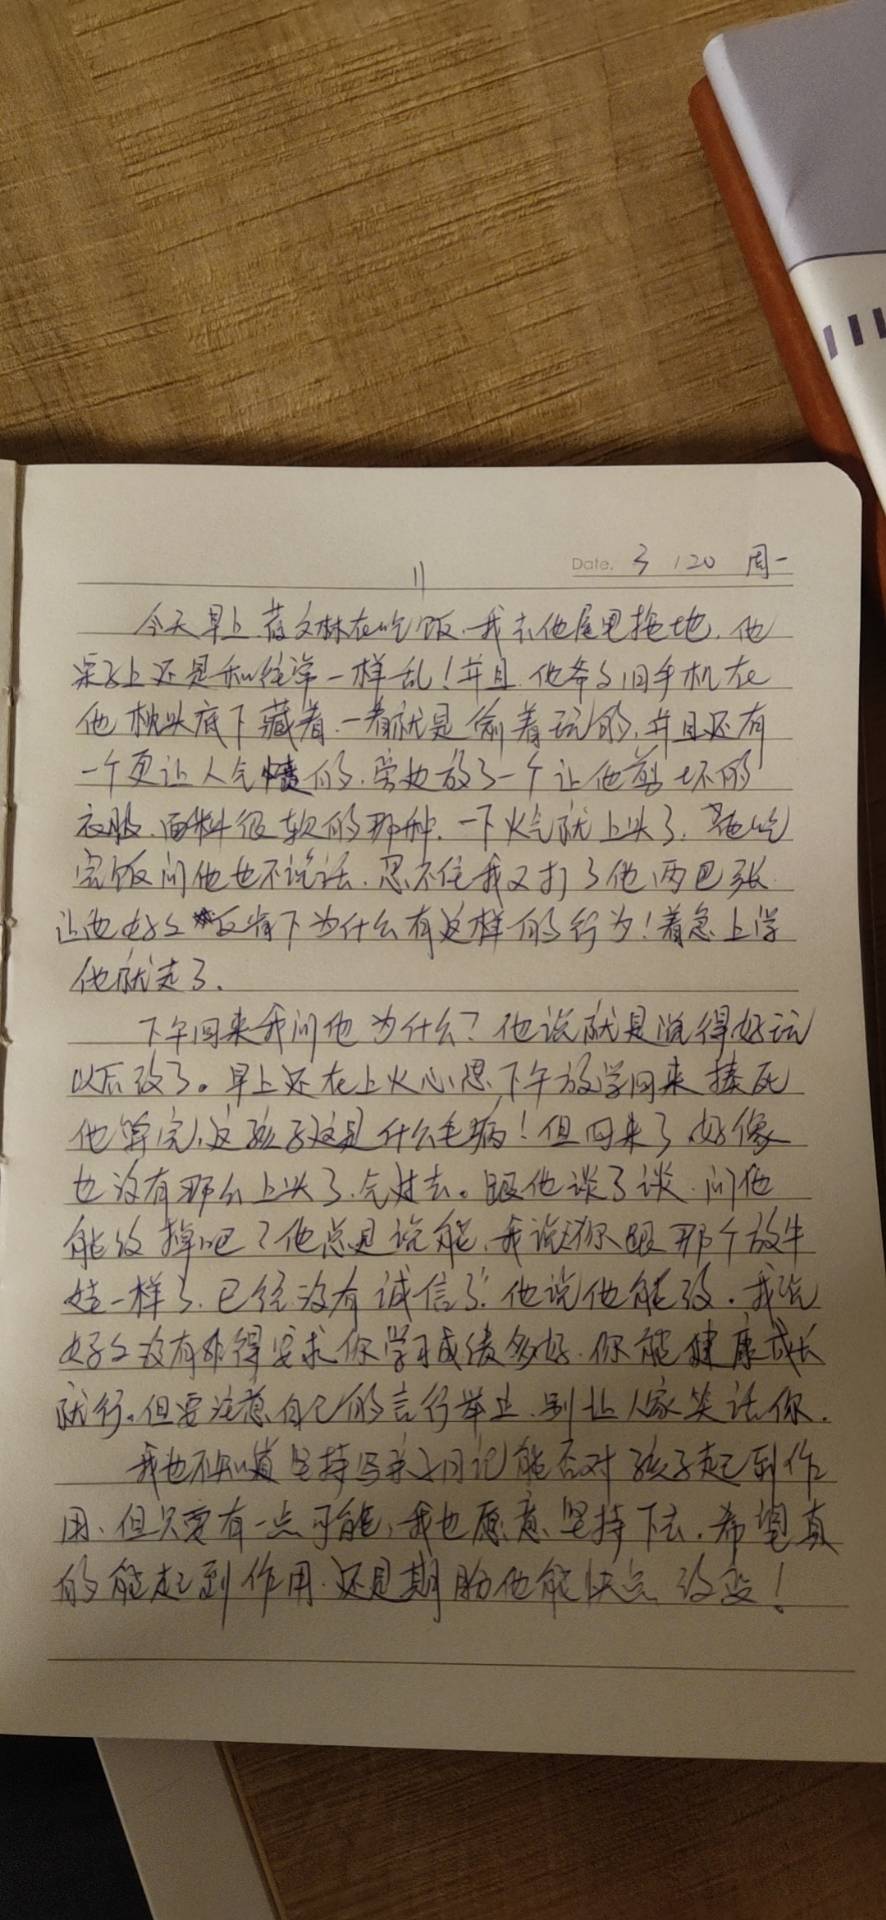 Date. 3 / 20 周一
11
今天早上 文林在吃饭、我去他屋里拖地、他
桌子上还是和往常一样乱!并且 他爷爷旧手机在
他枕头底下藏着、一看就是偷着玩的、并且还有
一个更让人气愤的、旁边放了一个让他剪坏的
衣服、面料很软的那种、一下火气就上头了、等他吃
完饭问他也不说话、忍不住我又打了他两巴张
让他好好反省下为什么有这样的行为!着急上学
他就走了、
下午回来我问他为什么?他说就是觉得好玩
以后改了。早上还在上火心思、下午放学回来揍死
他算完、这孩子这是什么毛病!但回来了好像
也没有那么上头了、气过去。跟他谈了谈、问他
能改掉吧?他总是说能、我说你跟那个放牛
娃一样了、已经没有诚信了!他说他能改、我说
好好没有非得要求你学习成绩多好、你能健康成长
就行。但要注意自己的言行举止、别让人家笑话你、
我也不知道坚持写亲子日记能否对孩子起到作
用、但只要有一点可能、我也愿意坚持下去、希望真
的能起到作用、还是期盼他能快点改变!